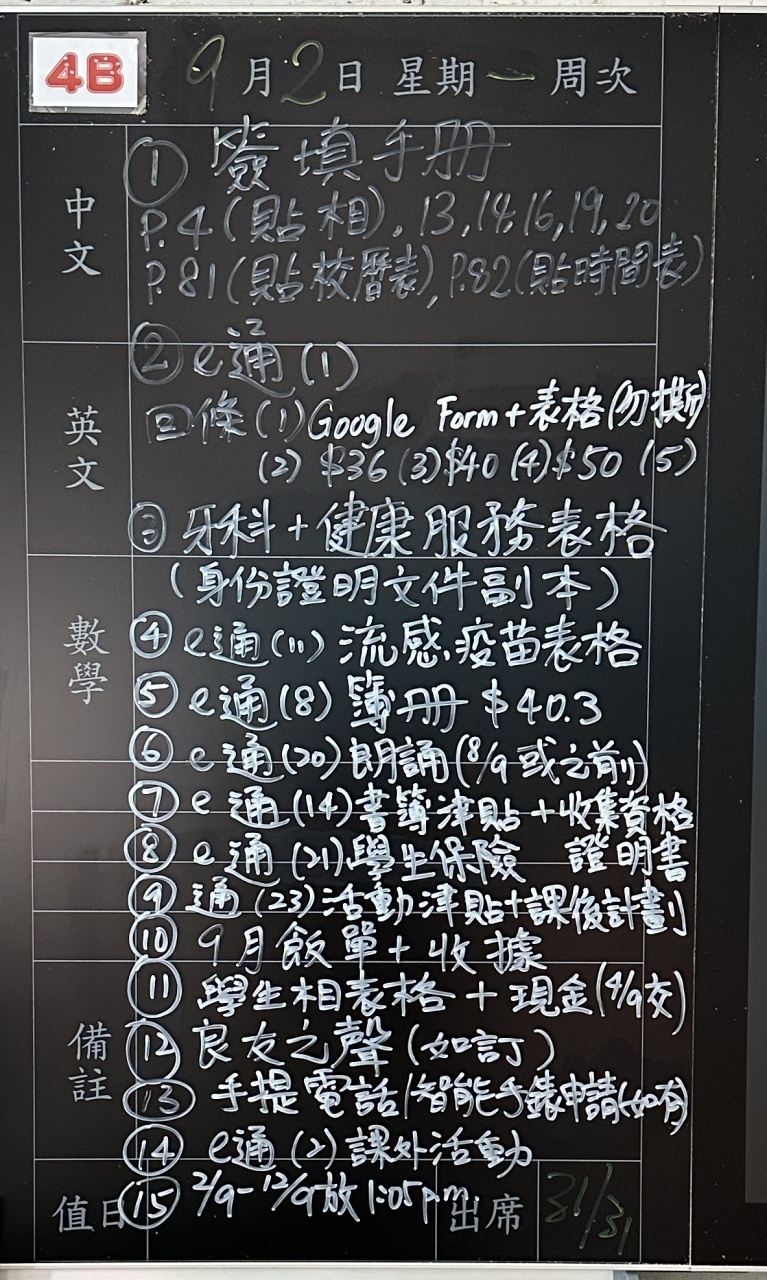 4B
9月2日 星期一 周次
中文
① 簽填手冊
P.4(貼相), 13,14,16,19,20
P.81(貼校曆表), P.82(貼時間表)
英文
② e通(1)
回條(1)Google Form+表格(勿撕)
(2) $36 (3)$40 (4)$50 (5)
③ 牙科+健康服務表格
數學
(身份證明文件副本)
④ e通(11) 流感疫苗表格
⑤ e通(8) 簿冊 $40.3
⑥ e通(20)朗誦(8/9或之前)
⑦ e通(14)書簿津貼+收集資格
⑧ e通(21)學生保險 證明書
⑨ 通(23)活動津貼+課後計劃
⑩ 9月飯單+收據
備註
⑪ 學生相表格+現金(4/9交)
⑫ 良友之聲(如訂)
⑬ 手提電話/智能手錶申請(如有)
⑭ e通(2)課外活動
⑮ 2/9-12/9放1:05pm
值日 出席 31/31